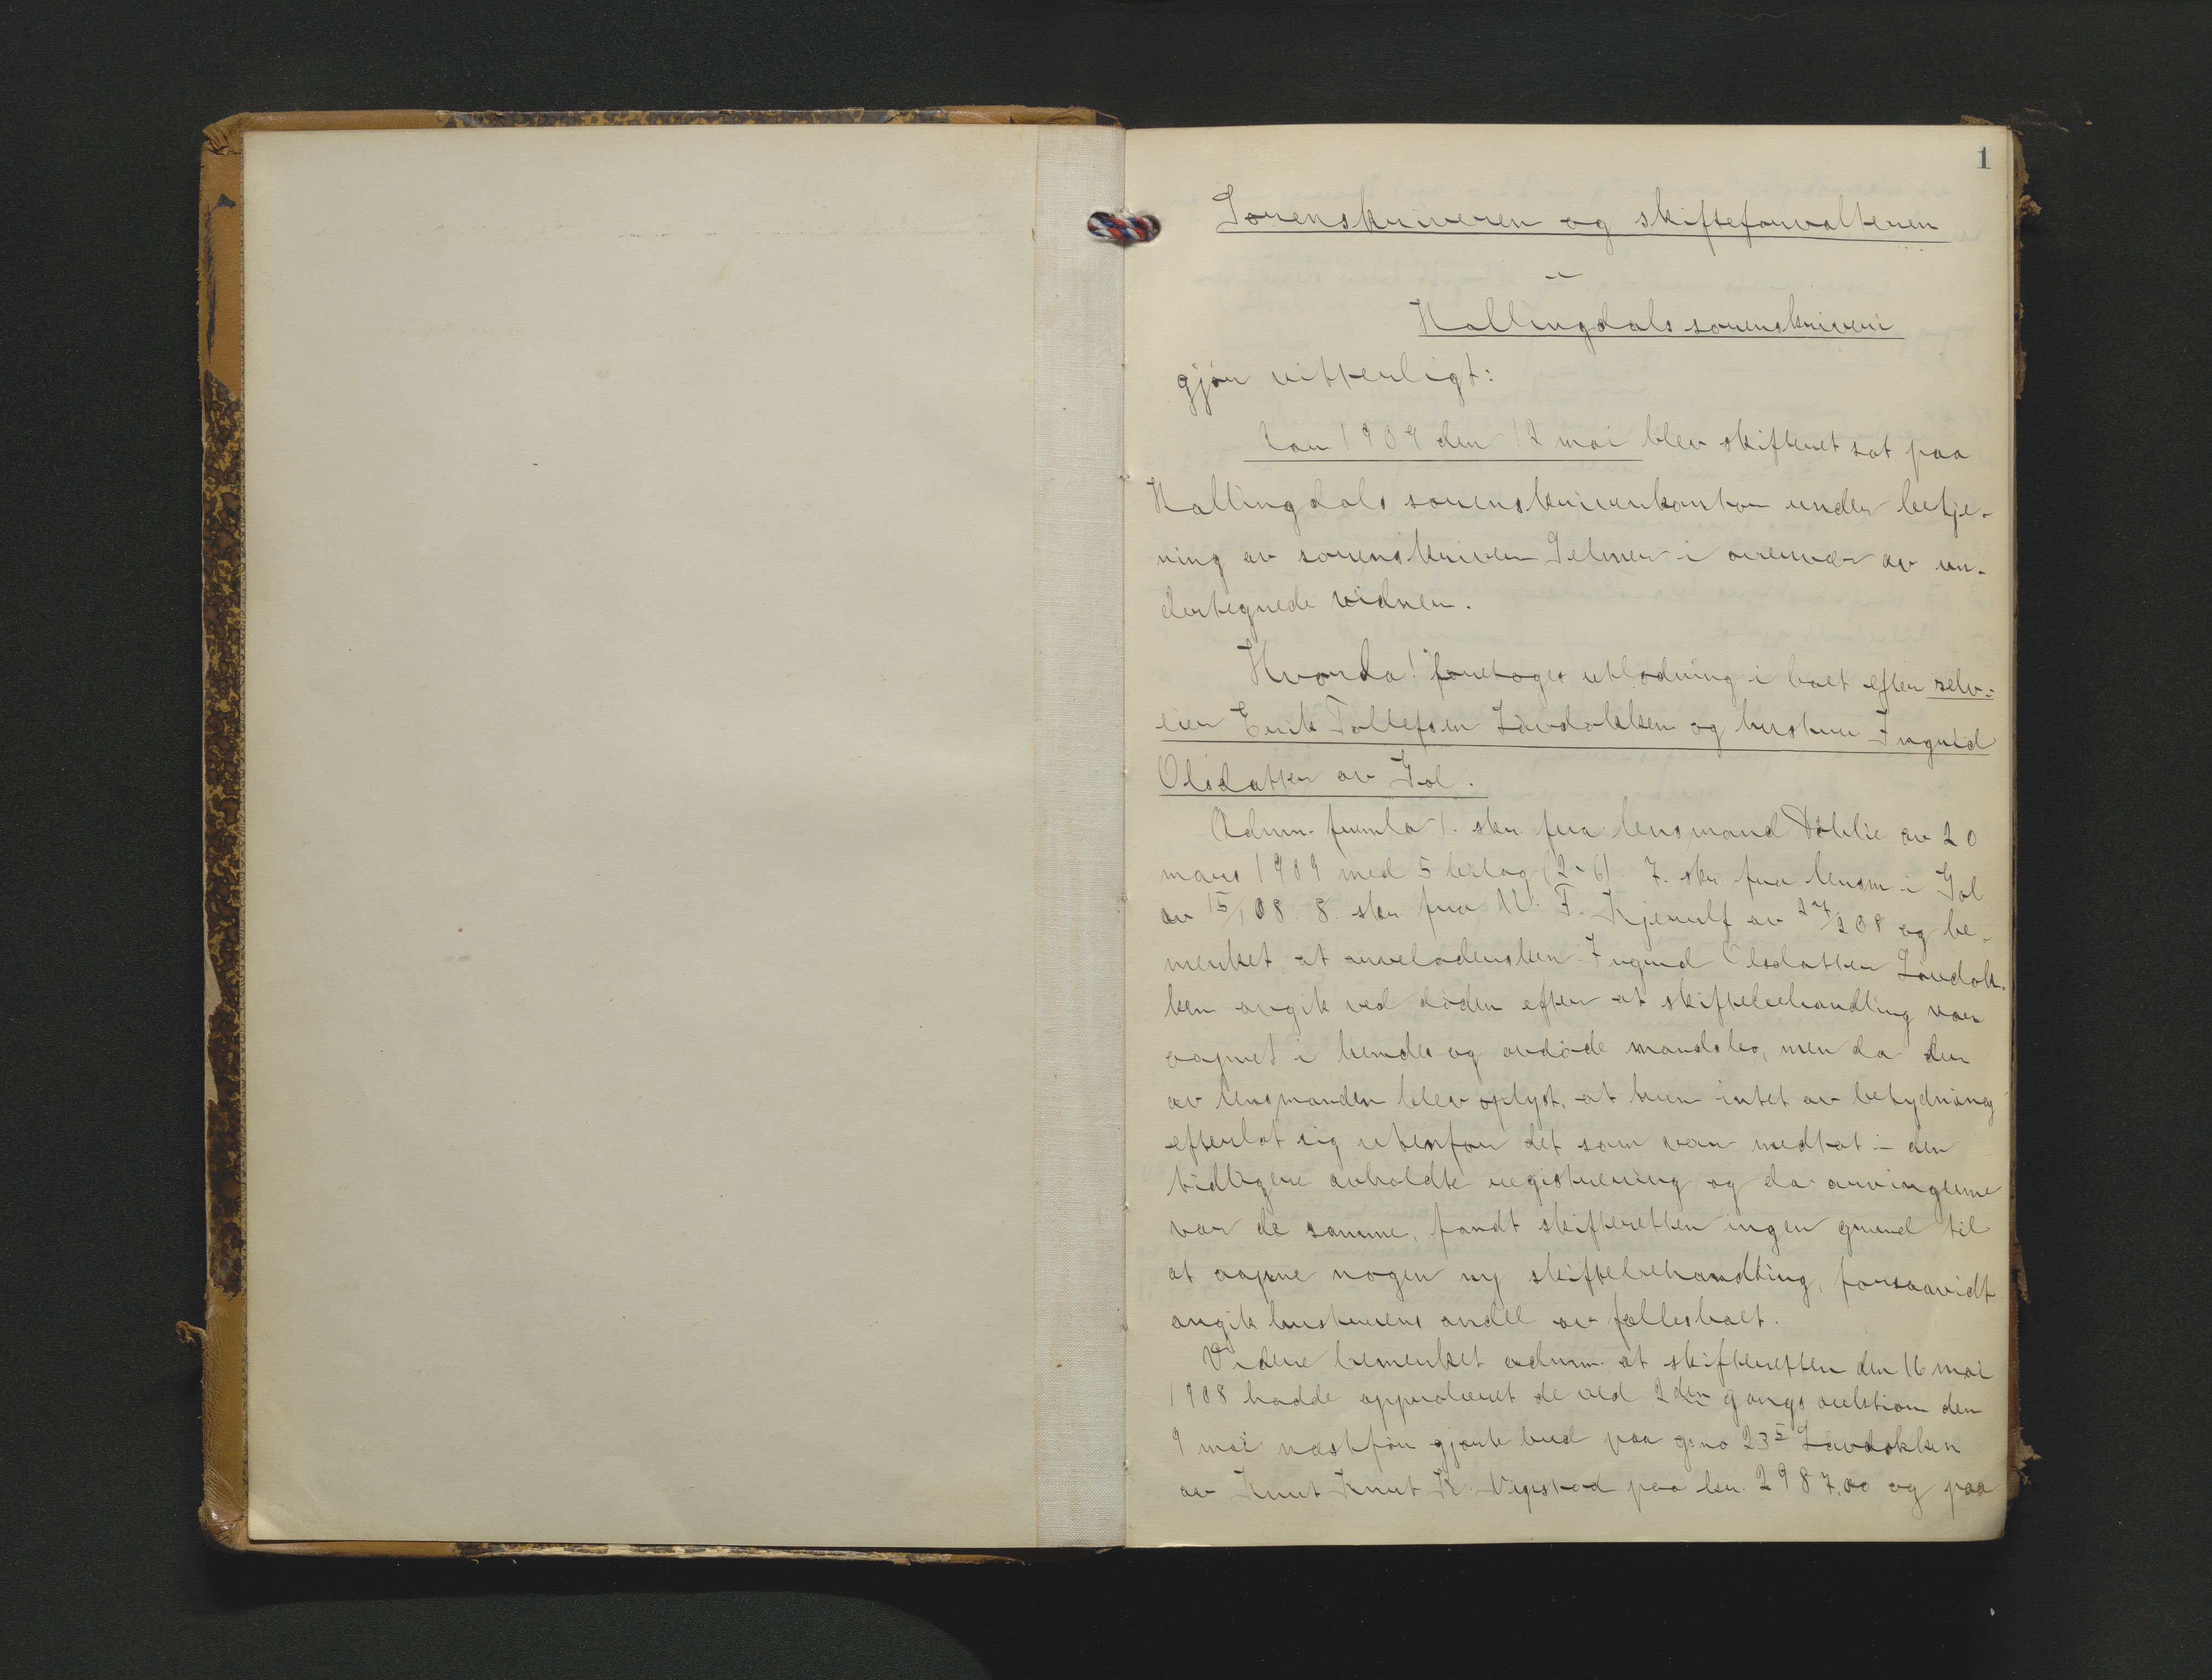 1
Sorenskriveren og skifteforvalteren
i
Hallingdals sorenskriveri
gjør vitterligt:
Aar 1909 den 12 mai blev skifteret sat paa
Hallingdals sorenskriverkontor under betje-
ning av sorenskriver Selmer i overvær av un-
dertegnede vidner.
Hvorda! foretoges utlodning i boet efter selv-
eier Erik Tollefsen Låvdokken og hustru Ingrid
Olsdatter av Gol.
Adm. fremla 1. skr. fra lensmand Døhlie av 20
mars 1909 med 5 bilag (2-6) 7. skr fra lensm i Gol
av 15/1 08. 8. skr fra Th. F. Kjerulf av 27/2 08 og be-
merket, at arveladersken Ingrid Olsdatter Låvdok-
ken avgik ved døden efter at skiftebehandling var
aapnet i hendes og avdøde mands bo, men da der
av lensmanden blev oplyst, at hun intet av betydning
efterlot sig utenfor det som var medtat i den
tidligere avholdte registrering og da arvingerne
var de samme, fandt skifteretten ingen grund til
at aapne nogen ny skiftebehandling, forsaavidt
angik hustruens andel av fællesboet.
Videre bemerket adm. at skifteretten den 16 mai
1908 hadde approberet de ved 2den gangs auktion den
9 mai næstfør gjorte bud paa gno 23⁵ Lavdokken
av Knut Knut K. paa kr. 2987,00 og paa